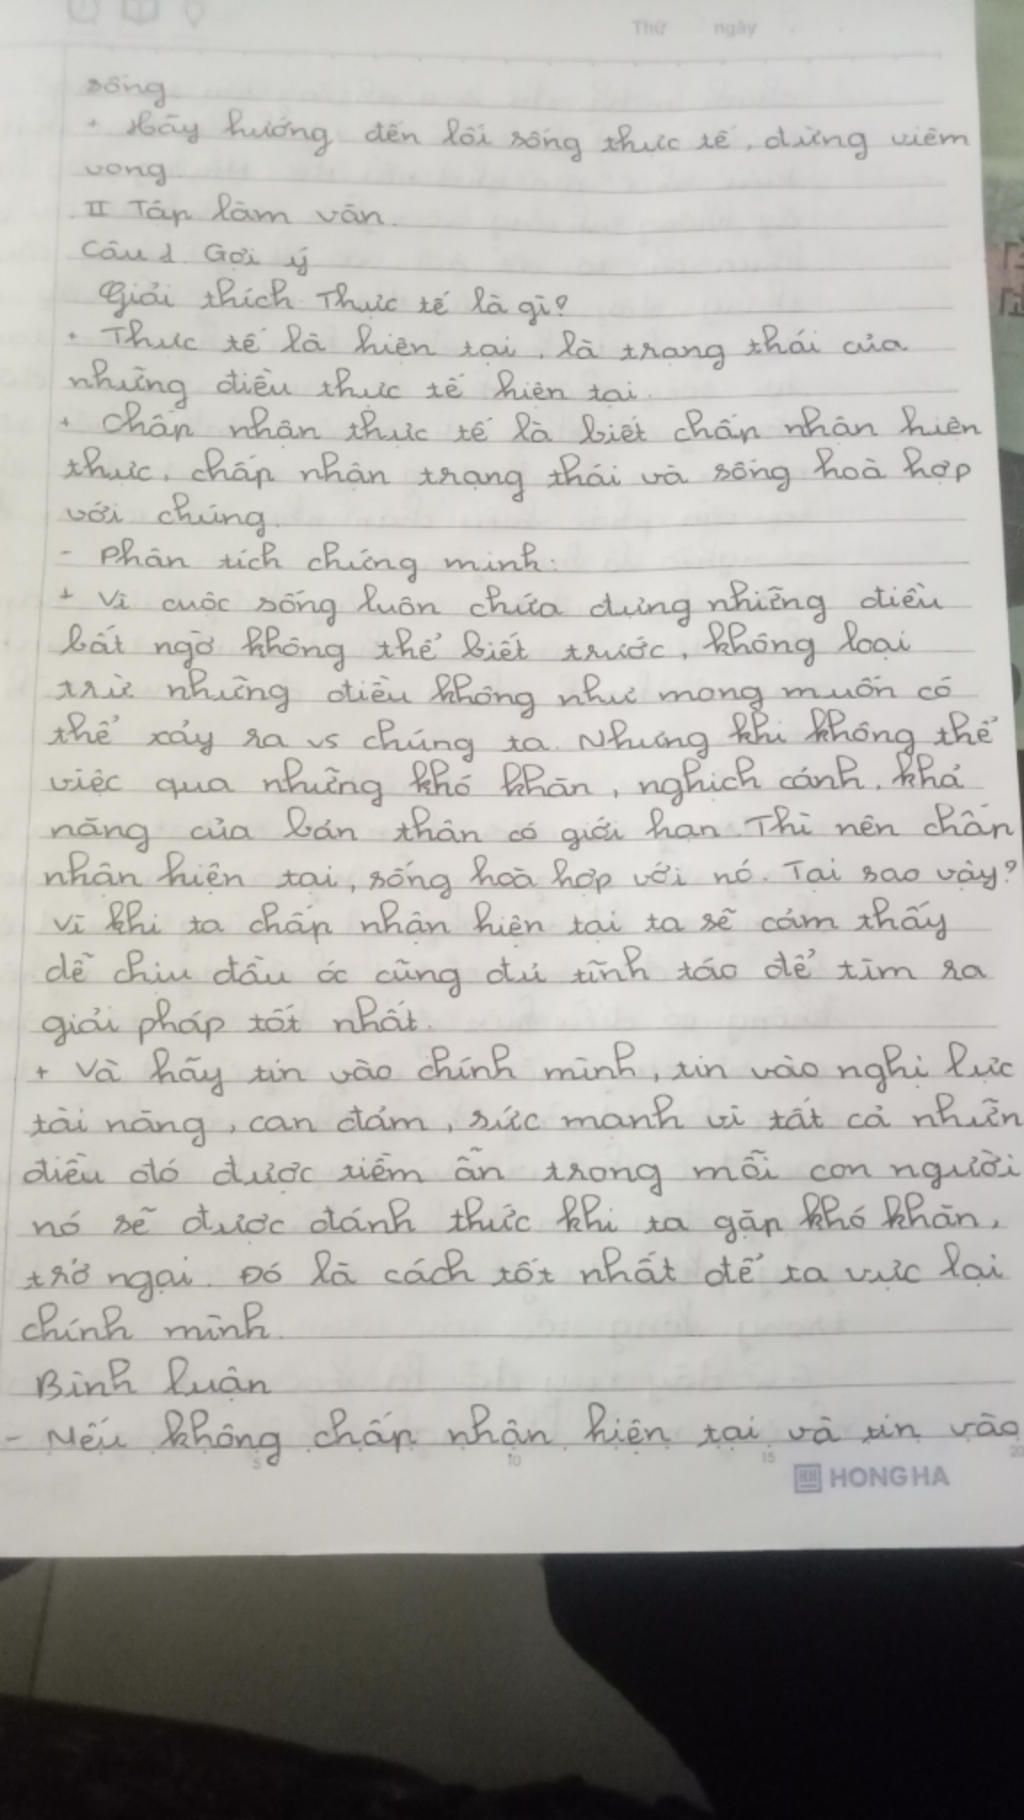 Thứ ngày
sống
+ Hãy hướng đến lối sống thực tế, đừng viêm
vong.
II Tập làm văn.
Câu 1 Gợi ý
Giải thích Thực tế là gì?
+ Thực tế là hiện tại, là trạng thái của
những điều thực tế hiện tại.
+ Chấp nhận thực tế là biết chấp nhận hiện
thực, chấp nhận trạng thái và sống hoà hợp
với chúng.
- Phân tích chứng minh:
+ Vì cuộc sống luôn chứa đựng những điều
bất ngờ không thể biết trước, không loại
trừ những điều không như mong muốn có
thể xảy ra vs chúng ta. Nhưng khi không thể
việc qua những khó khăn, nghịch cảnh, khả
năng của bản thân có giới hạn. Thì nên chấp
nhận hiện tại, sống hoà hợp với nó. Tại sao vậy?
Vì khi ta chấp nhận hiện tại ta sẽ cảm thấy
dễ chịu đầu óc cũng đủ tĩnh táo để tìm ra
giải pháp tốt nhất.
+ Và hãy tin vào chính mình, tin vào nghị lực
tài năng, can đảm, sức mạnh vì tất cả nhữn
điều đó được tiềm ẩn trong mỗi con người
nó sẽ được đánh thức khi ta gặp khó khăn,
trở ngại. Đó là cách tốt nhất để ta vực lại
chính mình.
Bình luận
- Nếu không chấp nhận hiện tại và tin vào
5 10 15 20
HONG HA